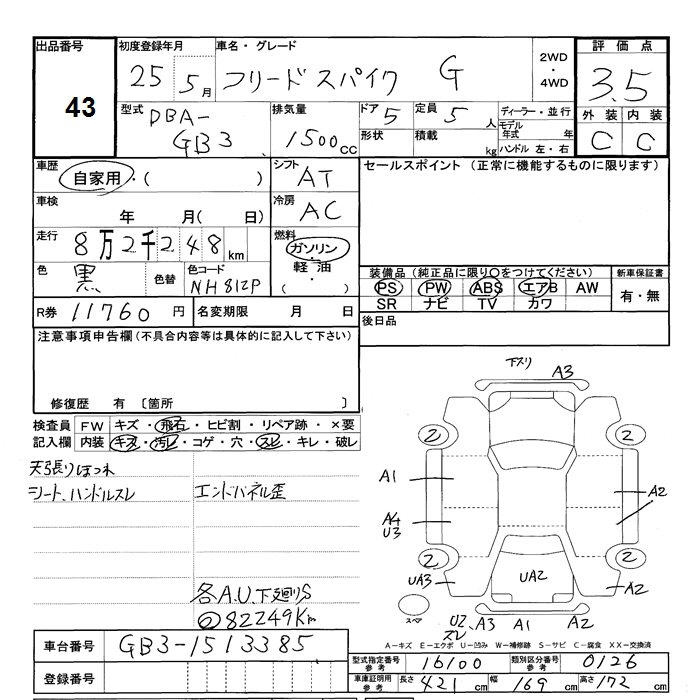 出品番号
43
初度登録年月
25 5月
車名・グレード
フリードスパイク G
2WD
・
4WD
評価点
3.5
外装 内装
C C
型式
DBA-
GB3
排気量
1500cc
ドア 5
形状
定員 5人
積載 kg
ディーラー・並行
モデル年式 年
ハンドル 左・右
車歴
自家用・( )
シフト AT
車検
年 月( 日)
冷房 AC
走行
8万2千248km
燃料
ガソリン
軽油
( )
色 黒
色替
色コード
NH812P
R券 11760円
名変期限 月 日
セールスポイント (正常に機能するものに限ります)
装備品(純正品に限り○をつけてください)
PS PW ABS エアB AW
SR ナビ TV カワ
新車保証書
有・無
後日品
注意事項申告欄(不具合内容等は具体的に記入して下さい)
修復歴 有 〔箇所 〕
検査員
記入欄
FW キズ・飛石・ヒビ割・リペア跡・×要
内装 キズ・汚レ・コゲ・穴・スレ・キレ・破レ
天張りほつれ
シート、ハンドルスレ
エンドパネル歪
各A.U.下廻りS
◎82249Km
下スリ
A3
2
2
A1
A2
A4
U3
2
2
UA3
UA2
A2
スペア
U2
スレ
A3
A1
A2
A-キズ E-エクボ U-凹み W-補修跡 S-サビ C-腐食 XX-交換済
車台番号 GB3-1513385
登録番号
型式指定番号
参考
16100
類別区分番号
参考
0126
車庫証明用
参考
長さ 421cm
幅 169cm
高さ 172cm